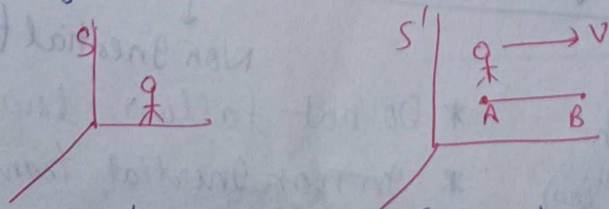 S
S'
V
A
B